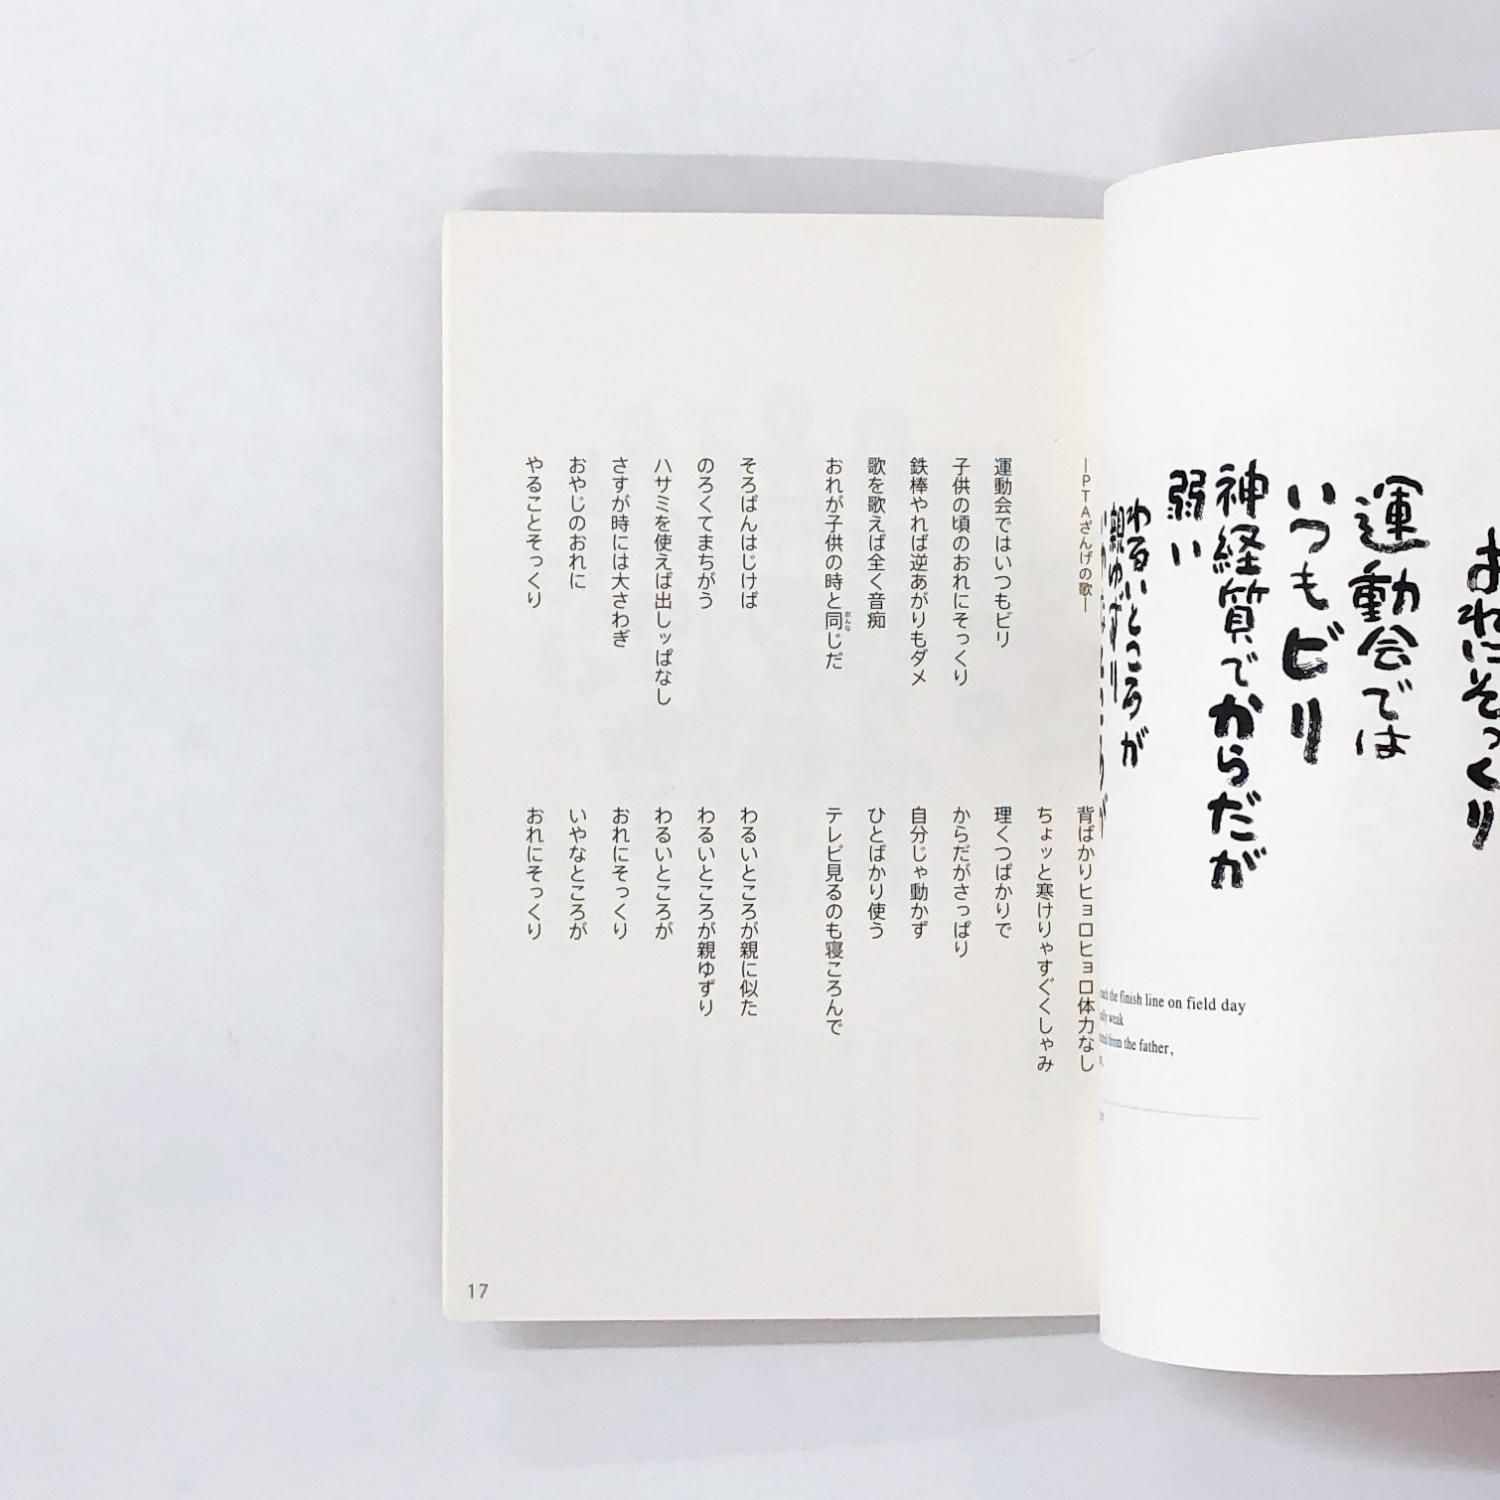 おれにそっくり
運動会では
いつもビリ
神経質でからだが
弱い
わるいところが
親ゆずり
the finish line on field day
weak
from the father,
―PTAざんげの歌―
運動会ではいつもビリ
子供の頃のおれにそっくり
鉄棒やれば逆あがりもダメ
歌を歌えば全く音痴
おれが子供の時と同じだ
おんな
そろばんはじけば
のろくてまちがう
ハサミを使えば出しッぱなし
さすが時には大さわぎ
おやじのおれに
やることそっくり
背ばかりヒョロヒョロ体力なし
ちょッと寒けりゃすぐくしゃみ
理くつばかりで
からだがさっぱり
自分じゃ動かず
ひとばかり使う
テレビ見るのも寝ころんで
わるいところが親に似た
わるいところが親ゆずり
わるいところが
おれにそっくり
いやなところが
おれにそっくり
17